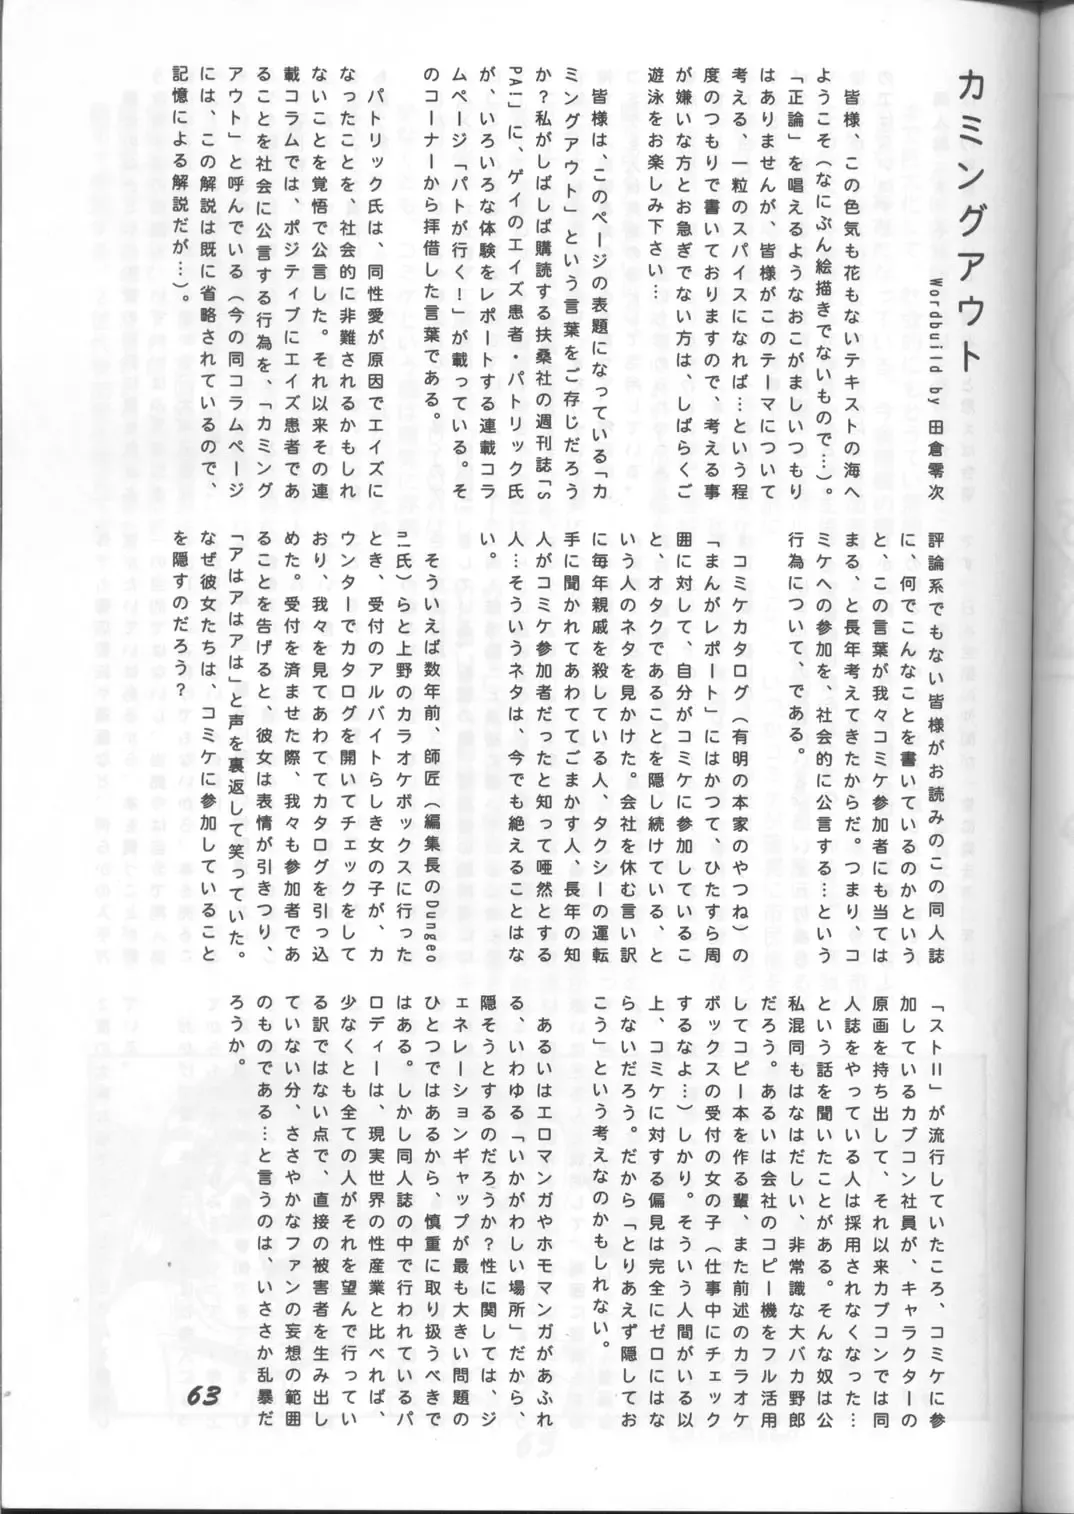 カミングアウト
Wordbuild by 田倉零次
皆様、この色気も花もないテキストの海へ
ようこそ（なにぶん絵描きでないもので…）。
「正論」を唱えるようなおこがましいつもり
はありませんが、皆様がこのテーマについて
考える、一粒のスパイスになれば…という程
度のつもりで書いておりますので、考える事
が嫌いな方とお急ぎでない方は、しばらくご
遊泳をお楽しみ下さい…
皆様は、このページの表題になっている「カ
ミングアウト」という言葉をご存じだろう
か？私がしばしば購読する扶桑社の週刊誌「S
PA!」に、ゲイのエイズ患者・パトリック氏
が、いろいろな体験をレポートする連載コラ
ムページ「パトが行く！」が載っている。そ
のコーナーから拝借した言葉である。
パトリック氏は、同性愛が原因でエイズに
なったことを、社会的に非難されるかもしれ
ないことを覚悟で公言した。それ以来その連
載コラムでは、ポジティブにエイズ患者であ
ることを社会に公言する行為を、「カミング
アウト」と呼んでいる（今の同コラムページ
には、この解説は既に省略されているので、
記憶による解説だが…）。
評論系でもない皆様がお読みのこの同人誌
に、何でこんなことを書いているのかという
と、この言葉が我々コミケ参加者にも当ては
まる、と長年考えてきたからだ。つまり、コ
ミケへの参加を、社会的に公言する…という
行為について、である。
コミケカタログ（有明の本家のやつね）の
「まんがレポート」にはかつて、ひたすら周
囲に対して、自分がコミケに参加しているこ
と、オタクであることを隠し続けている、と
いう人のネタを見かけた。会社を休む言い訳
に毎年親戚を殺している人、タクシーの運転
手に聞かれてあわててごまかす人、長年の知
人がコミケ参加者だったと知って唖然とする
人…そういうネタは、今でも絶えることはな
い。
そういえば数年前、師匠（編集長のDungeo
n!氏）らと上野のカラオケボックスに行った
とき、受付のアルバイトらしき女の子が、カ
ウンターでカタログを開いてチェックをして
おり、我々を見てあわててカタログを引っ込
めた。受付を済ませた際、我々も参加者であ
ることを告げると、彼女は表情が引きつり、
「アはアはアは」と声を裏返して笑っていた。
なぜ彼女たちは、コミケに参加していること
を隠すのだろう？
「ストⅡ」が流行していたころ、コミケに参
加しているカプコン社員が、キャラクターの
原画を持ち出して、それ以来カプコンでは同
人誌をやっている人は採用されなくなった…
という話を聞いたことがある。そんな奴は公
私混同もはなはだしい、非常識な大バカ野郎
だろう。あるいは会社のコピー機をフル活用
してコピー本を作る輩、また前述のカラオケ
ボックスの受付の女の子（仕事中にチェック
するなよ…）しかり。そういう人間がいる以
上、コミケに対する偏見は完全にゼロにはな
らないだろう。だから「とりあえず隠してお
こう」という考えなのかもしれない。
あるいはエロマンガやホモマンガがあふれ
る、いわゆる「いかがわしい場所」だから、
隠そうとするのだろうか？性に関しては、ジ
ェネレーションギャップが最も大きい問題の
ひとつではあるから、慎重に取り扱うべきで
はある。しかし同人誌の中で行われているパ
ロディーは、現実世界の性産業と比べれば、
少なくとも全ての人がそれを望んで行ってい
る訳ではない点で、直接の被害者を生み出し
ていない分、ささやかなファンの妄想の範囲
のものである…と言うのは、いささか乱暴だ
ろうか。
63